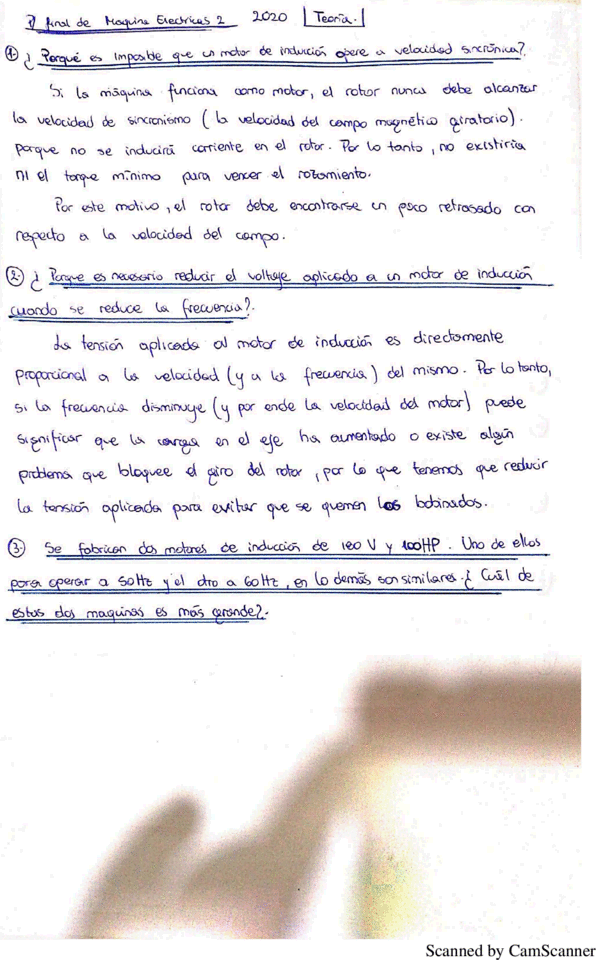 1) final de Maquina Electricas 2 2020 Teoría.
1. ¿ Porqué es imposible que un motor de inducción opere a velocidad sincrónica?
Si la máquina funciona como motor, el rotor nunca debe alcanzar
la velocidad de sincronismo (la velocidad del campo magnético giratorio).
porque no se inducirá corriente en el rotor. Por lo tanto, no existiría
ni el torque mínimo para vencer el rozamiento.
Por este motivo, el rotor debe encontrarse un poco retrasado con
respecto a la velocidad del campo.
2. ¿ Porque es necesario reducir el voltaje aplicado a un motor de inducción
cuando se reduce la frecuencia?.
La tensión aplicada al motor de inducción es directamente
proporcional a la velocidad (y a la frecuencia) del mismo. Por lo tanto,
si la frecuencia disminuye (y por ende la velocidad del motor) puede
significar que la carga en el eje ha aumentado o existe algún
problema que bloquee el giro del rotor, por lo que tenemos que reducir
la tensión aplicada para evitar que se quemen los bobinados.
3. Se fabrican dos motores de inducción de 180 V y 100HP. Uno de ellos
para operar a 50Hz y el otro a 60Hz, en lo demás son similares. ¿ Cuál de
estas dos maquinas es más grande?.
Scanned by CamScanner